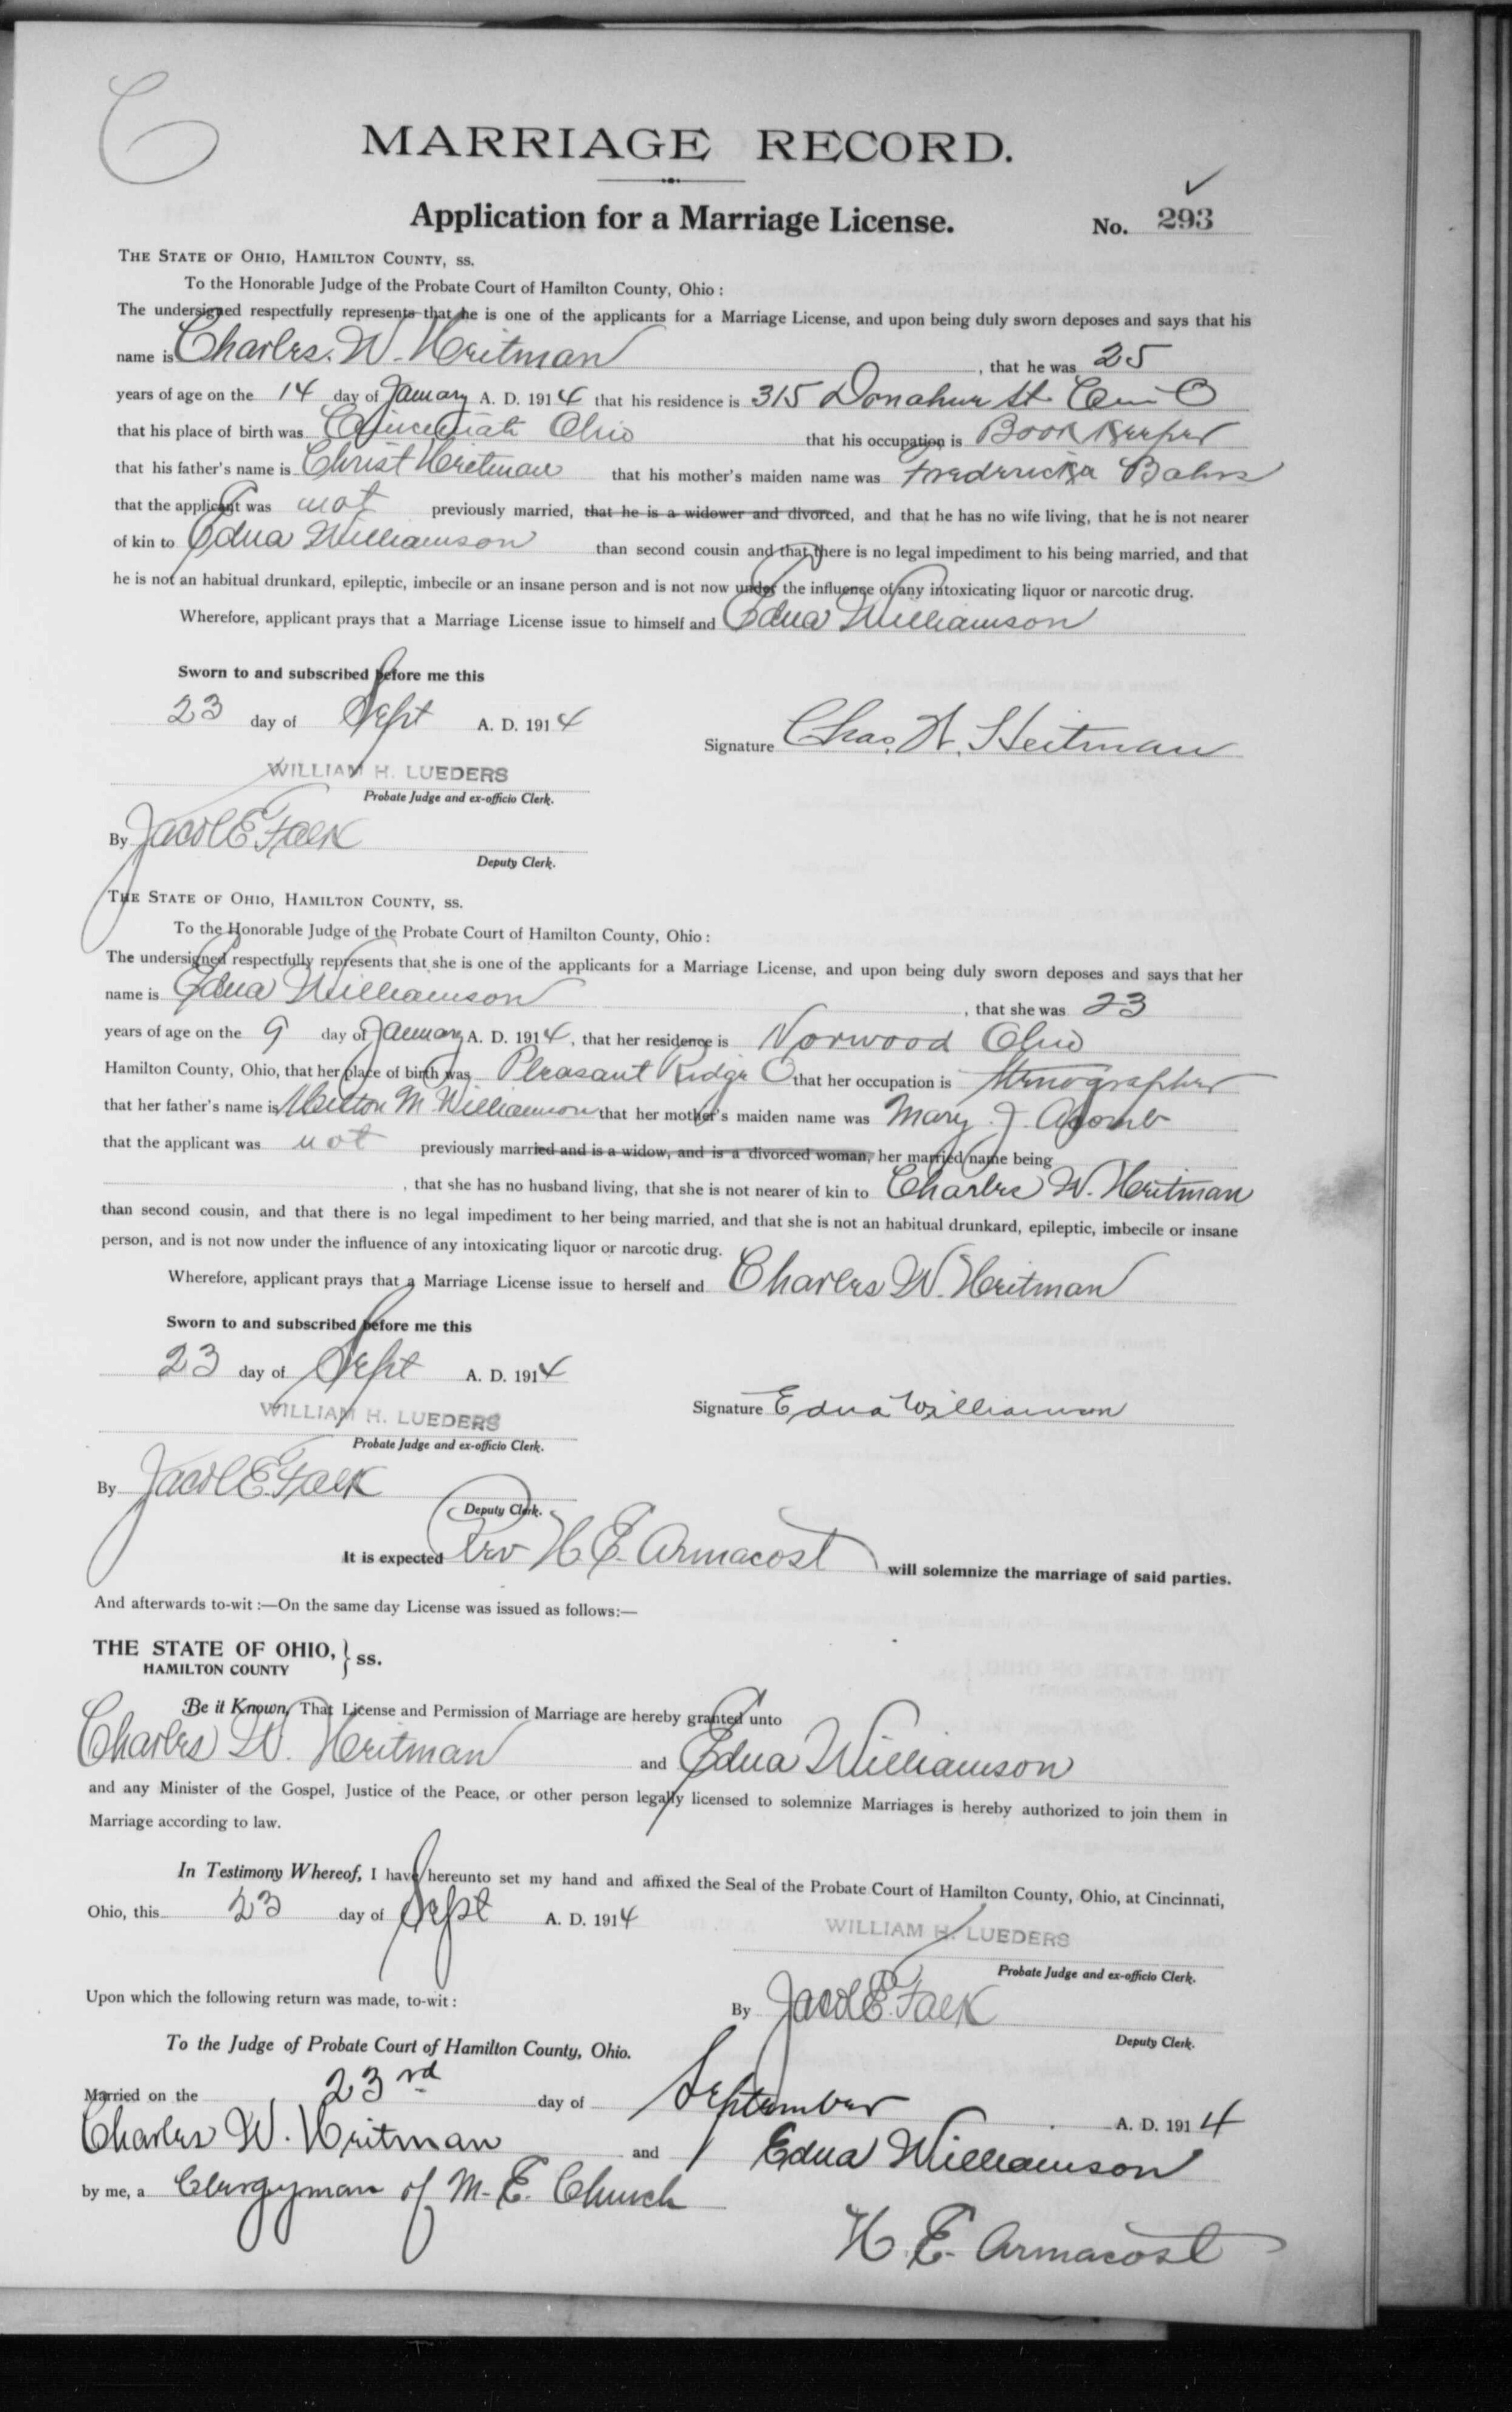 MARRIAGE RECORD.
Application for a Marriage License. No. 293
THE STATE OF OHIO, HAMILTON COUNTY, ss.
To the Honorable Judge of the Probate Court of Hamilton County, Ohio:
The undersigned respectfully represents that he is one of the applicants for a Marriage License, and upon being duly sworn deposes and says that his
name is Charles. W. Heitman, that he was 25
years of age on the 14 day of January A. D. 1914 that his residence is 315 Donahue St. Cin O
that his place of birth was Cincinnati Ohio that his occupation is Book Keeper
that his father's name is Christ Heitman that his mother's maiden name was Fredericka Bahrs
that the applicant was not previously married, that he is a widower and divorced, and that he has no wife living, that he is not nearer
of kin to Edna Williamson than second cousin and that there is no legal impediment to his being married, and that
he is not an habitual drunkard, epileptic, imbecile or an insane person and is not now under the influence of any intoxicating liquor or narcotic drug.
Wherefore, applicant prays that a Marriage License issue to himself and Edna Williamson
Sworn to and subscribed before me this
23 day of Sept A. D. 1914
Signature Chas. W. Heitman
WILLIAM H. LUEDERS
Probate Judge and ex-officio Clerk.
By Jacob E Falk
Deputy Clerk.
THE STATE OF OHIO, HAMILTON COUNTY, ss.
To the Honorable Judge of the Probate Court of Hamilton County, Ohio:
The undersigned respectfully represents that she is one of the applicants for a Marriage License, and upon being duly sworn deposes and says that her
name is Edna Williamson, that she was 23
years of age on the 9 day of January A. D. 1914, that her residence is Norwood Ohio
Hamilton County, Ohio, that her place of birth was Pleasant Ridge O that her occupation is Stenographer
that her father's name is Milton M Williamson that her mother's maiden name was Mary J.
that the applicant was not previously married and is a widow, and is a divorced woman, her married name being
, that she has no husband living, that she is not nearer of kin to Charles W. Heitman
than second cousin, and that there is no legal impediment to her being married, and that she is not an habitual drunkard, epileptic, imbecile or insane
person, and is not now under the influence of any intoxicating liquor or narcotic drug.
Wherefore, applicant prays that a Marriage License issue to herself and Charles W. Heitman
Sworn to and subscribed before me this
23 day of Sept A. D. 1914
Signature Edna Williamson
WILLIAM H. LUEDERS
Probate Judge and ex-officio Clerk.
By Jacob E. Falk
Deputy Clerk.
It is expected Rev H E. Armacost will solemnize the marriage of said parties.
And afterwards to-wit:—On the same day License was issued as follows:—
THE STATE OF OHIO, } ss.
HAMILTON COUNTY
Be it Known, That License and Permission of Marriage are hereby granted unto
Charles W. Heitman and Edna Williamson
and any Minister of the Gospel, Justice of the Peace, or other person legally licensed to solemnize Marriages is hereby authorized to join them in
Marriage according to law.
In Testimony Whereof, I have hereunto set my hand and affixed the Seal of the Probate Court of Hamilton County, Ohio, at Cincinnati,
Ohio, this 23 day of Sept A. D. 1914
WILLIAM H. LUEDERS
Probate Judge and ex-officio Clerk.
Upon which the following return was made, to-wit:
By Jacob E. Falk
Deputy Clerk.
To the Judge of Probate Court of Hamilton County, Ohio.
Married on the 23rd day of September A. D. 1914
Charles W. Heitman and Edna Williamson
by me, a Clergyman of M. E. Church
H. E. Armacost